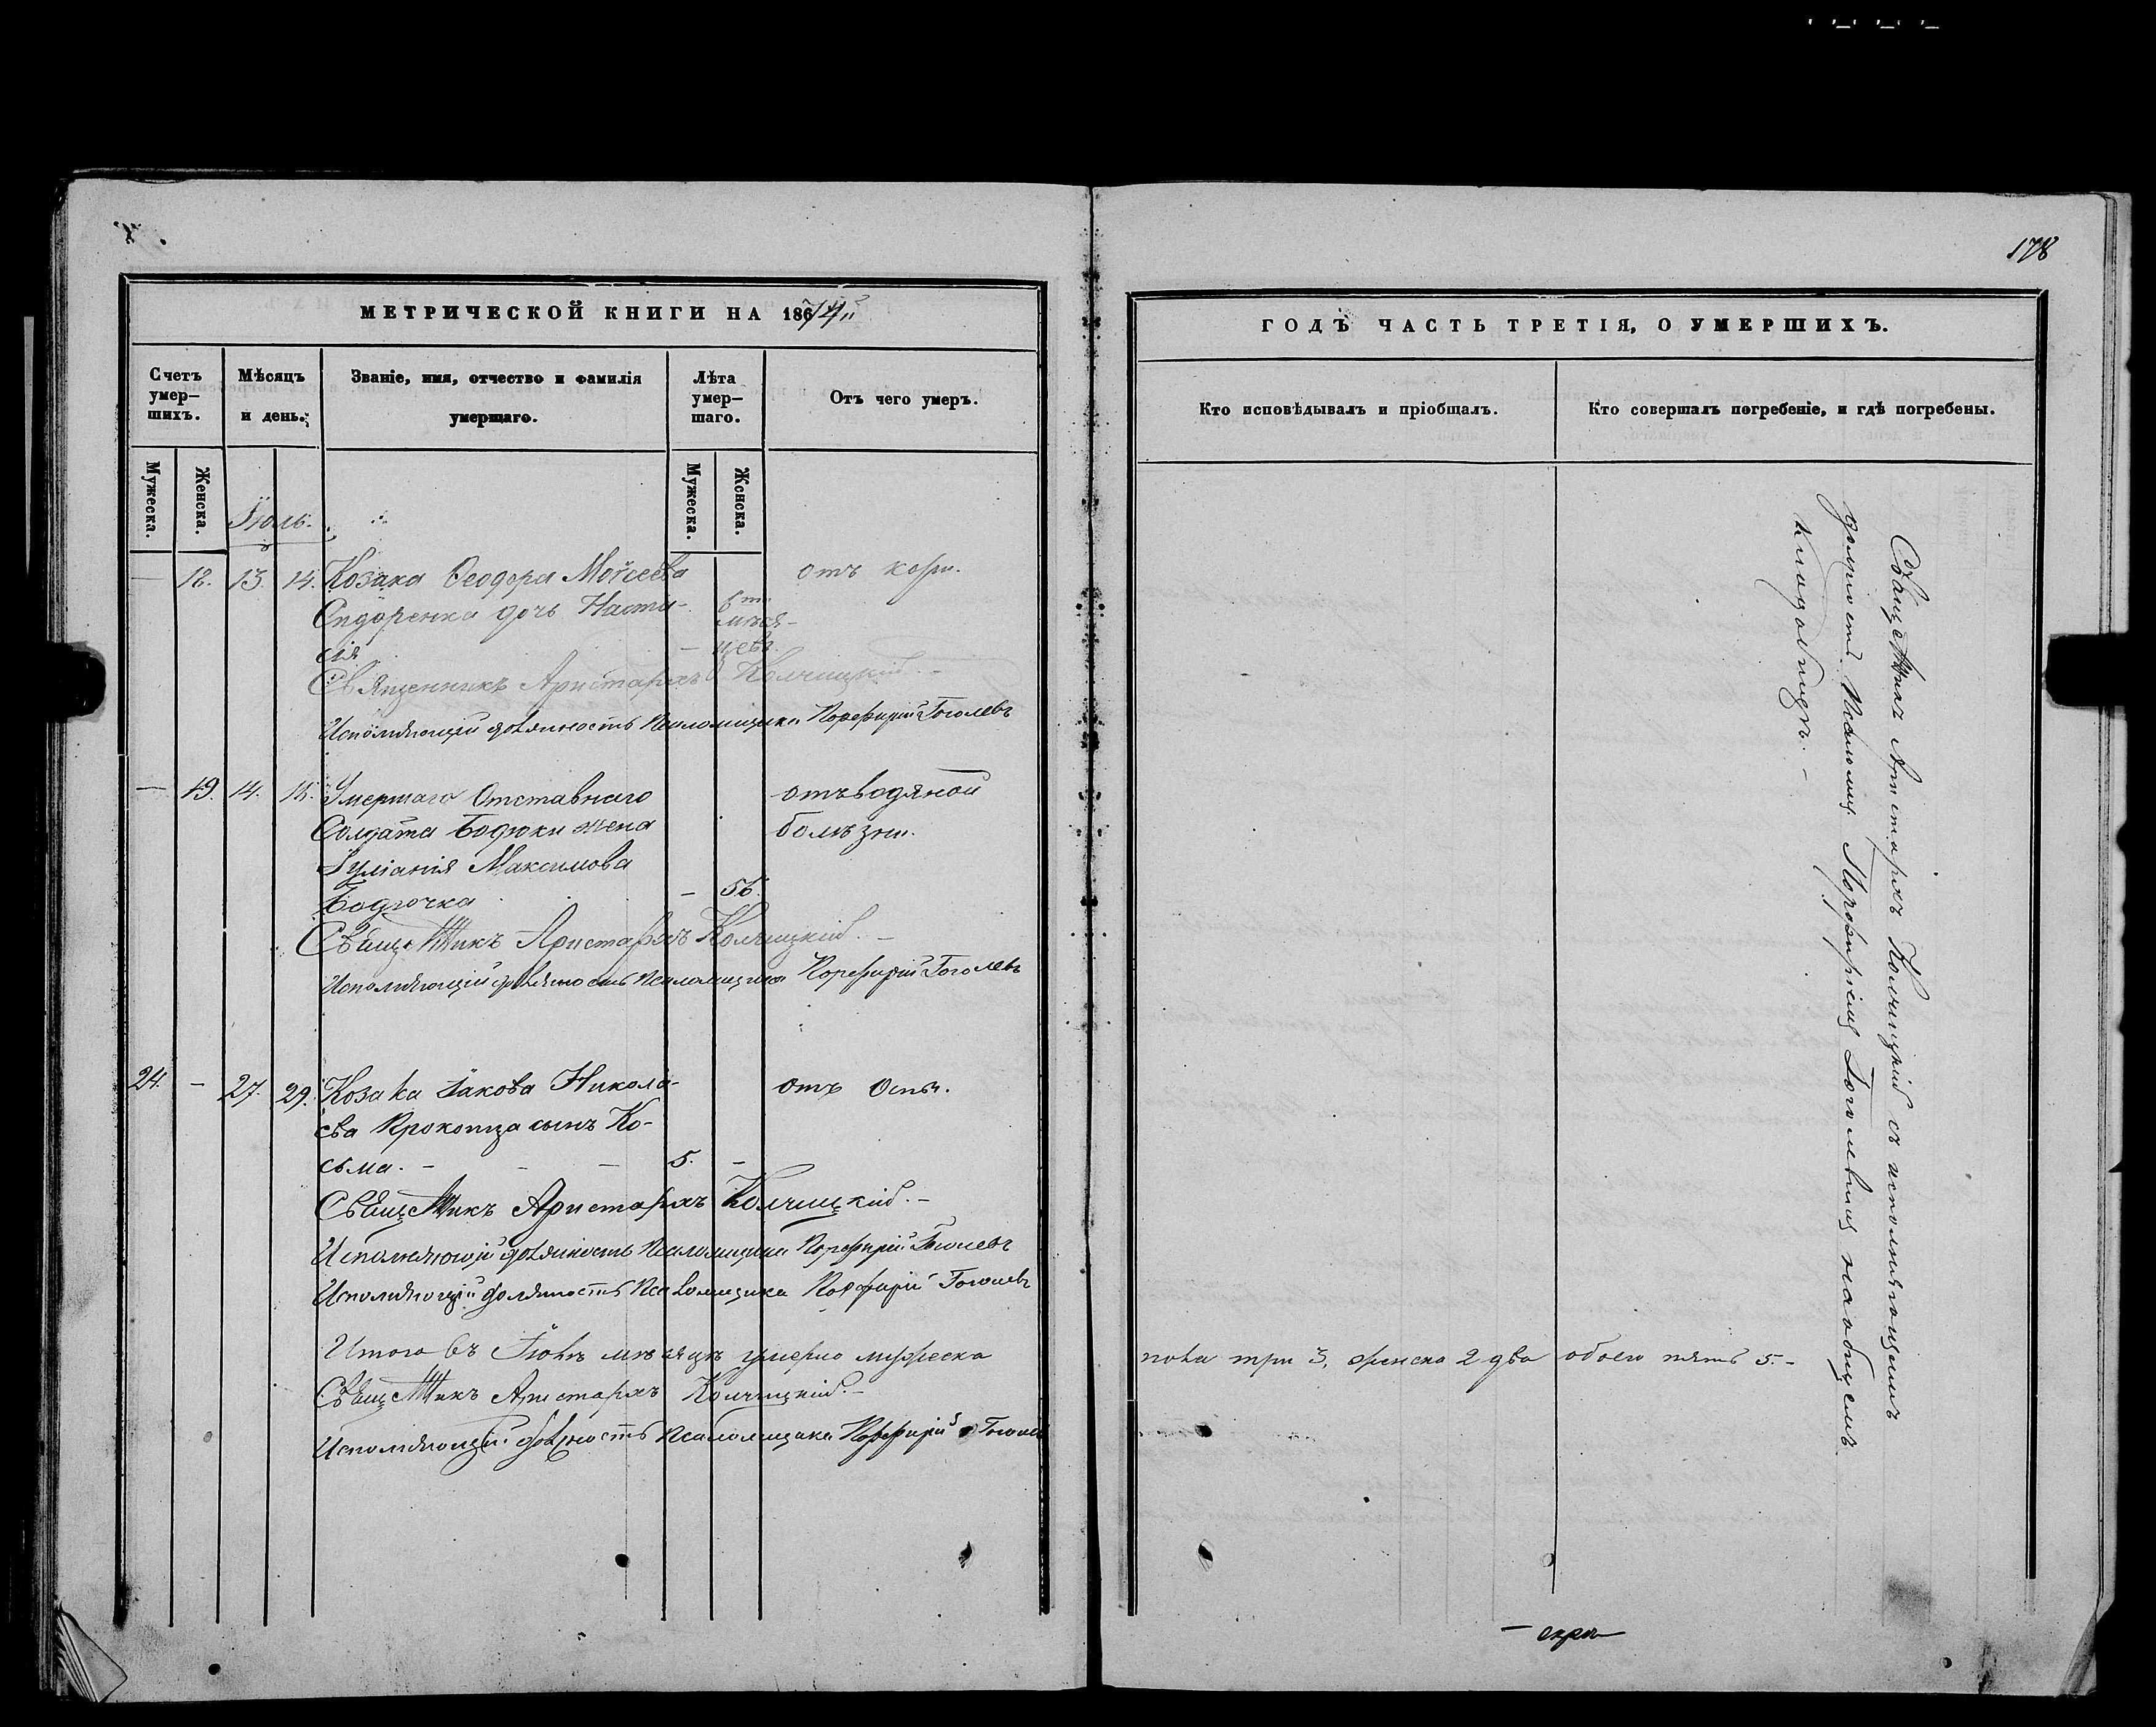 178
МЕТРИЧЕСКОЙ КНИГИ НА 186
ГОДЪ ЧАСТЬ ТРЕТІЯ, О УМЕРШИХЪ.
Счетъ умер-шихъ.
Мѣсяцъ и день.
Званіе, имя, отчество и фамилія умершаго.
Лѣта умер-шаго.
Отъ чего умеръ.
Кто исповѣдывалъ и пріобщалъ.
Кто совершалъ погребеніе, и гдѣ погребены.
Мужеска.
Женска.
Мужеска.
Женска.
Іюль.
— 18. 13. 14. Козака Ѳеодора Моѵсеева отъ кори.
Сидоренка дочь Настa-
сія — 6ти мѣся-цевъ.
Священникъ Аристархъ Колчицкій. -
Исполняющій должность Псаломщика Порфирій Гоголевъ
— 19. 14. Умершаго Отставнаго отъ водяной
Солдата Бодюки жена болѣзни.
Іуліанія Максимова
Бодючка — 56.
Священникъ Аристархъ Колчицкій. -
Исполняющій должность Псаломщика Порфирій Гоголевъ
24. - 27. 29. Козака Іакова Никола- отъ Оспы.
ева Прокопца сынъ Ко-
сьма. - - — 5. -
Священникъ Аристархъ Колчицкій. -
Исполняющій должность Псаломщика Порфирій Гоголевъ
Исполняющій должность Псаломщика Порфирій Гоголевъ
Итого въ Іюлѣ мѣсяцѣ умерло мужеска пола три 3, женска 2 два обоего пять 5. -
Священникъ Аристархъ Колчицкій. -
Исполняющій должность Псаломщика Порфирій Гоголевъ
Священникъ Аристархъ Колчицкій съ исполняющимъ
должность Псаломщ. Порфиріемъ Гоголевымъ на общемъ
кладбищѣ. -